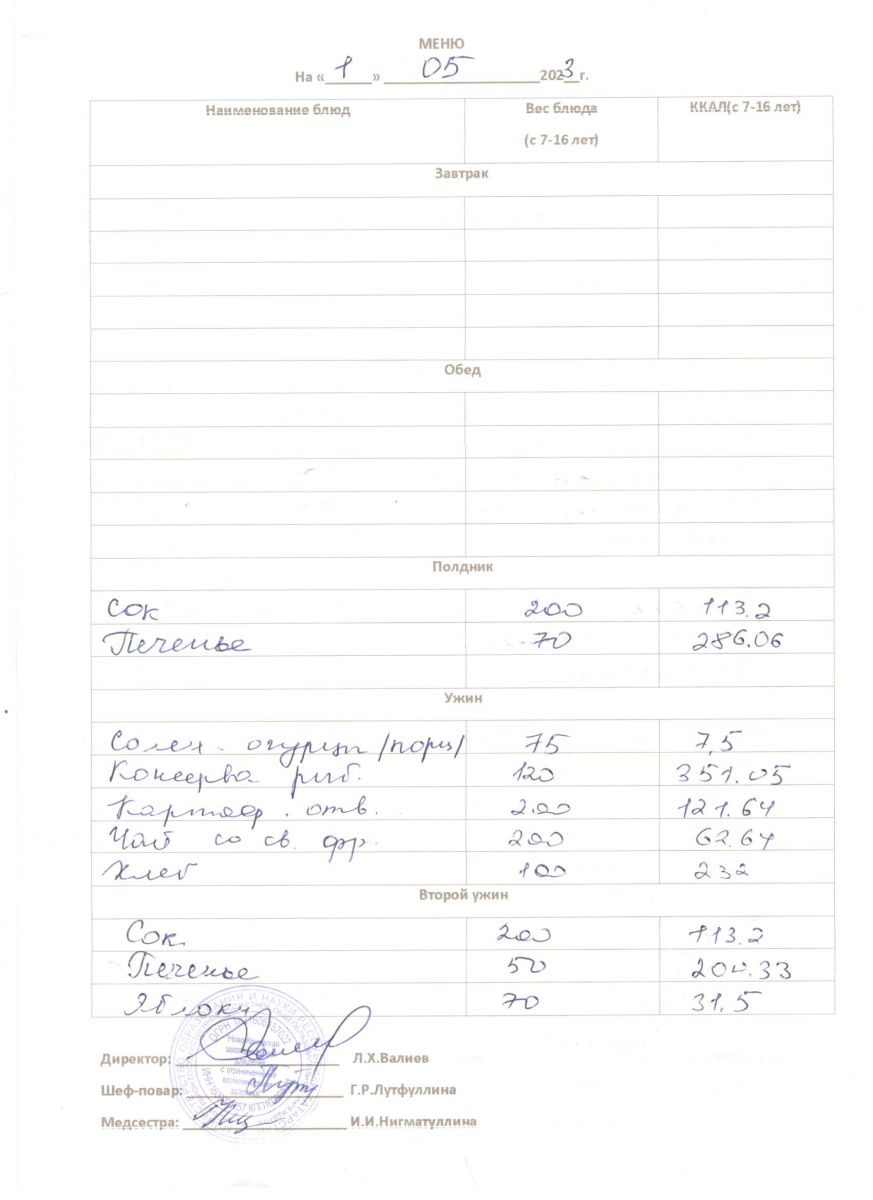 МЕНЮ
На « 1 » 05 2023 г.
Наименование блюд Вес блюда (с 7-16 лет) ККАЛ(с 7-16 лет)
Завтрак
Обед
Полдник
Сок 200 113.2
Печенье 70 286.06
Ужин
Солен. огурцы /порц/ 75 7,5
Консерва рыб. 120 351.05
Картоф. отв. 200 121.64
Чай со св. фр. 200 62.64
Хлеб 100 232
Второй ужин
Сок 200 113.2
Печенье 50 200.33
Яблоки 70 31.5
Директор: Л.Х.Валиев
Шеф-повар: Г.Р.Лутфуллина
Медсестра: И.И.Нигматуллина